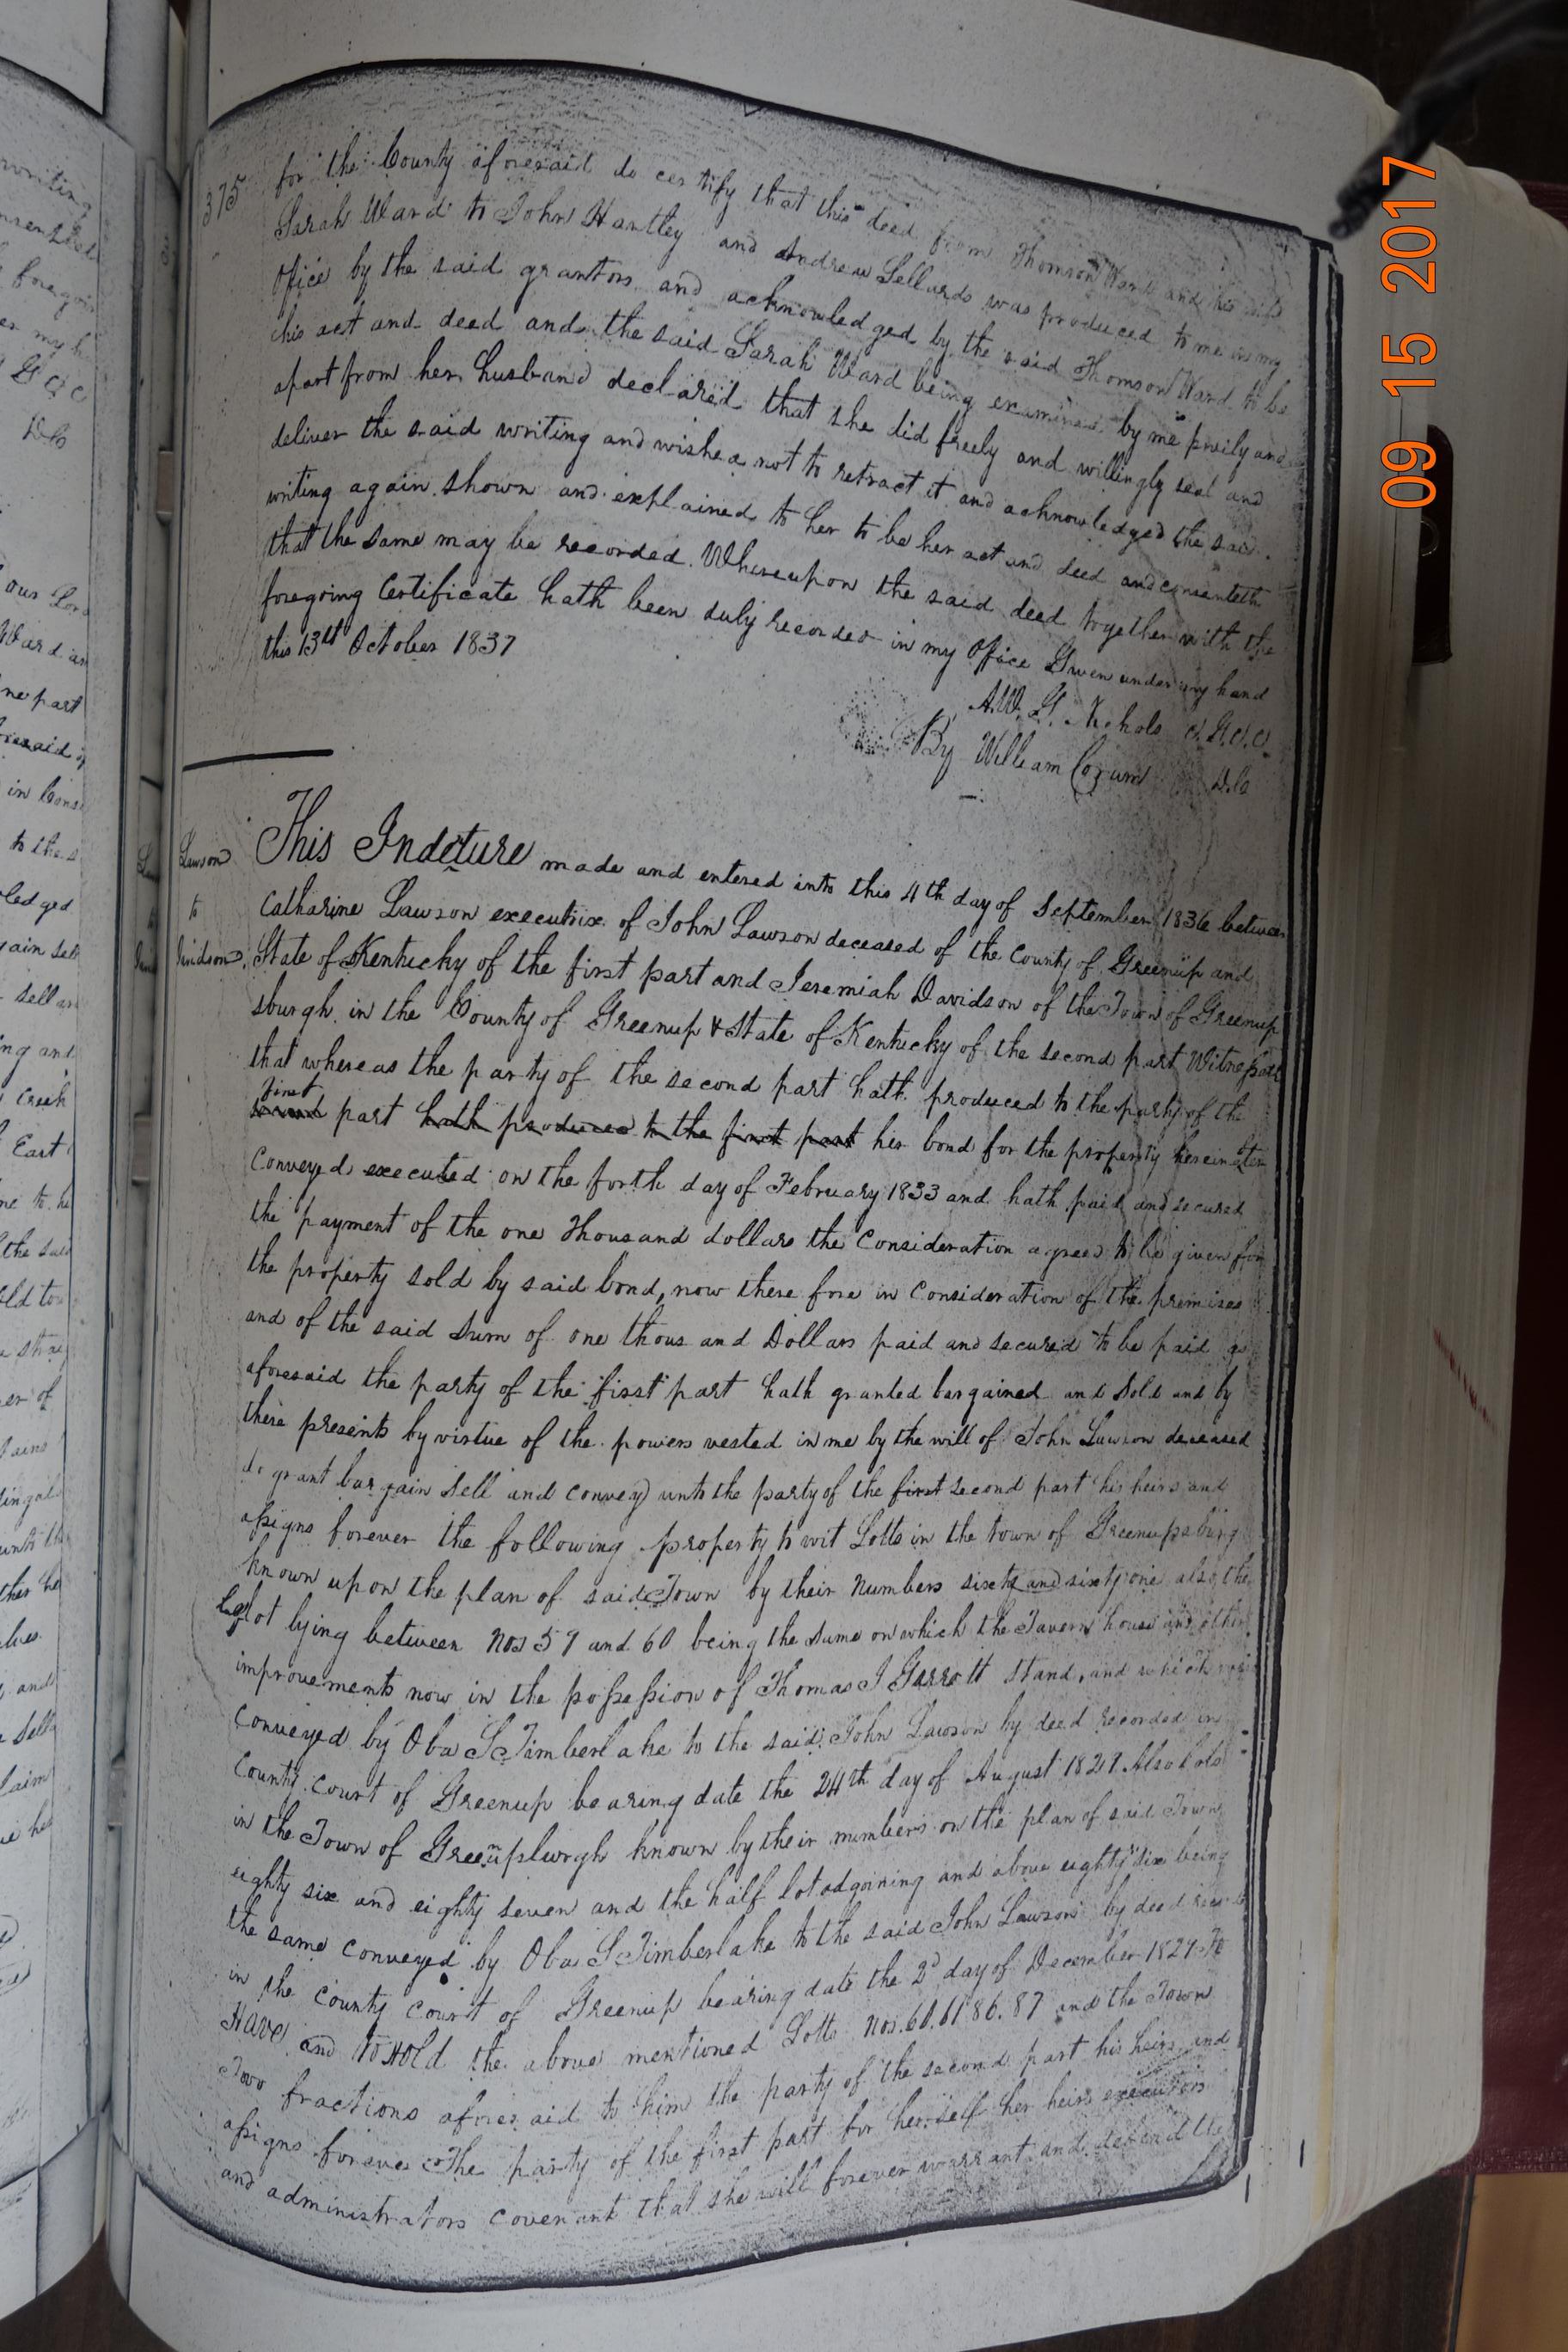 375
for the County aforesaid do certify that this deed from Thomson Ward and his wife
Sarah Ward to John Hartley and Andrew Sellards was produced to me in my
office by the said grantors and acknowledged by the said Thomson Ward to be
his act and deed and the said Sarah Ward being examined by me privily and
apart from her husband declared that she did freely and willingly seal and
deliver the said writing and wishes not to retract it and acknowledged the said
writing again shown and explained to her to be her act and deed and consenteth
that the same may be recorded. Whereupon the said deed together with the
foregoing Certificate hath been duly recorded in my Office Given under my hand
this 13th October 1837
A.W.G. Nichols C.G.C.C.
By William Corum D.C.
Lawson
to
Davidson
This Indeture made and entered into this 4th day of September 1836 between
Catharine Lawson executrix of John Lawson deceased of the County of Greenup and
State of Kentucky of the first part and Jeremiah Davidson of the Town of Greenup
sburgh in the County of Greenup & State of Kentucky of the second part Witnesseth
that whereas the party of the second part hath produced to the party of the
first
part hath produced to the first part her bond for the property hereinafter
Conveyed executed on the forth day of February 1833 and hath paid and secured
the payment of the one Thousand dollars the Consideration agreed to be given for
the property sold by said bond, now there fore in Consideration of the premises
and of the said Sum of one thous and Dollars paid and secured to be paid as
aforesaid the party of the first part hath granted bargained and Sold and by
these presents by virtue of the powers vested in me by the will of John Lawson deceased
do grant bargain Sell and convey unto the party of the first second part his heirs and
assigns forever the following property to wit Lotts in the town of Greenupsburg
known upon the plan of said Town by their Numbers sixty and sixty one also the
lot lying between Nos 59 and 60 being the same on which the Tavern house and other
improvements now in the possession of Thomas J Garrott stand, and which was
Conveyed by Oba S Timberlake to the said John Lawson by deed recorded in
County Court of Greenup bearing date the 24th day of August 1829. Also Lots
in the Town of Greenupsburgh known by their numbers on the plan of said Town
eighty six and eighty seven and the half lot adgoining and above eighty six being
the same conveyed by Oba S Timberlake to the said John Lawson by deed
in the County Court of Greenup bearing date the 2d day of December 1829 To
Have and To Hold the above mentioned Lotts Nos. 60.61 86.87 and the Town
Two fractions aforesaid to him the party of the second part his heirs and
assigns forever The party of the first part for herself her heirs executors
and administrators covenant that she will forever warrant and defend the
09 15 2017